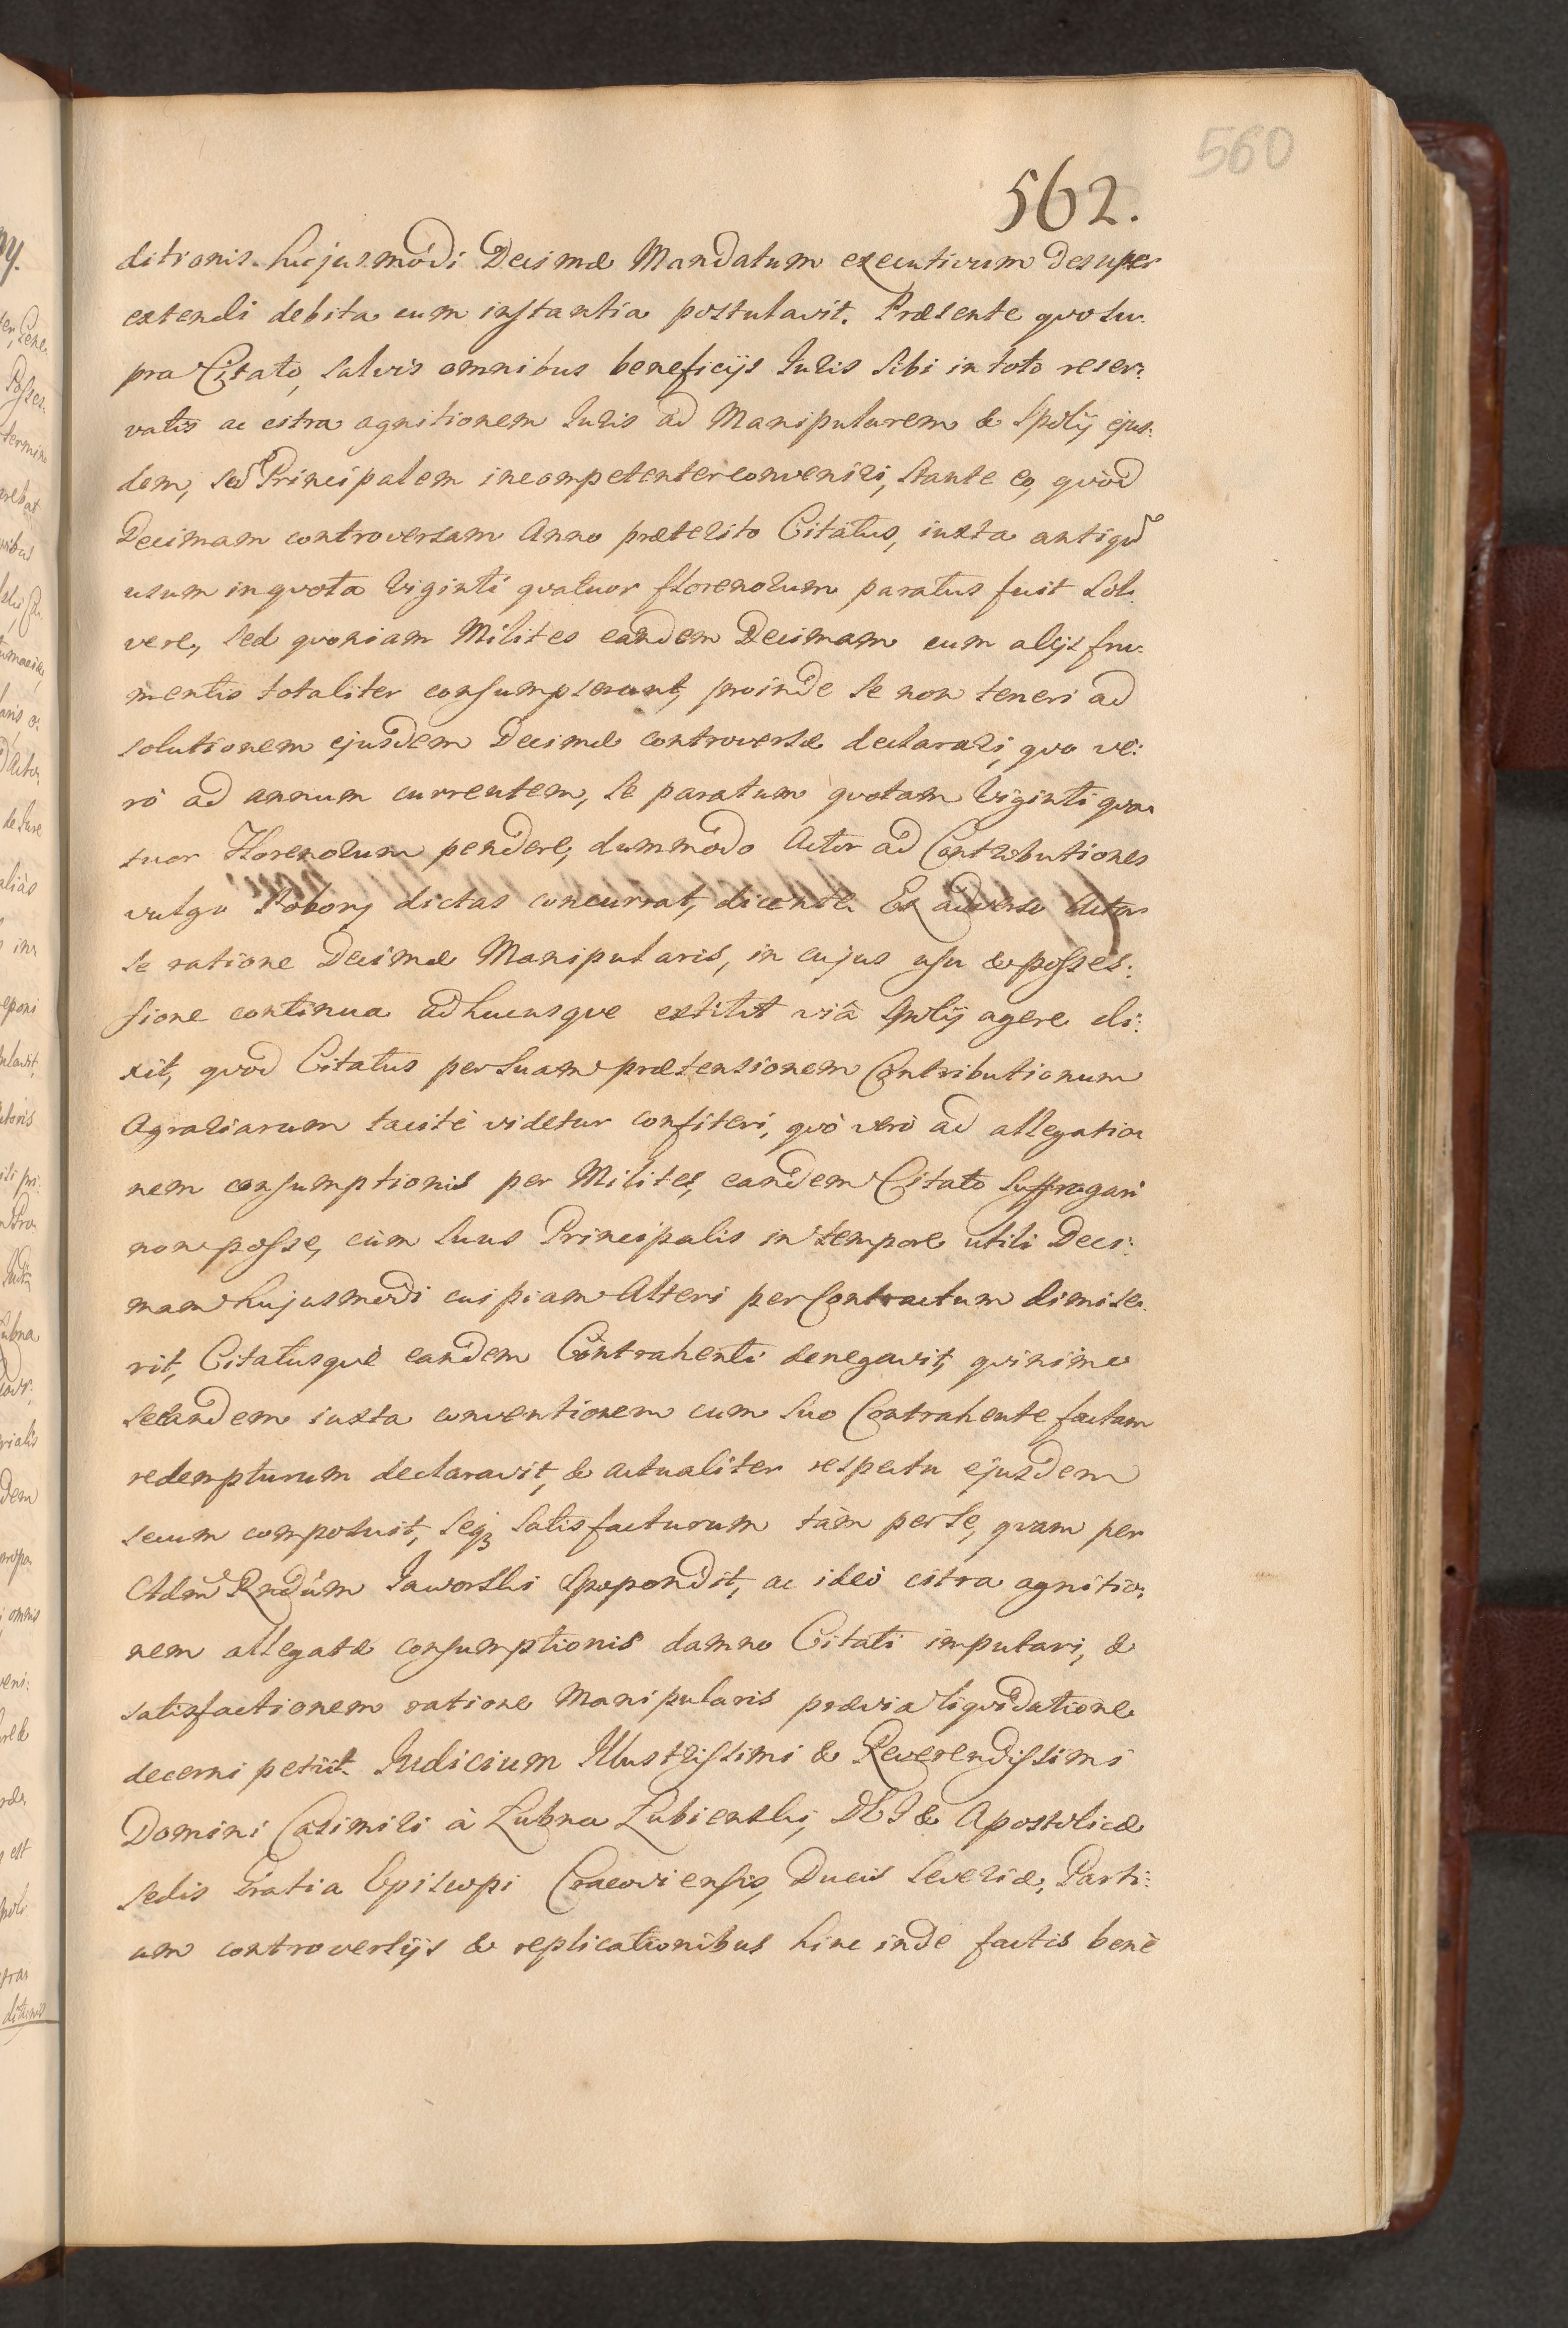 560
562.
ditionis hujusmodi Decimæ Mandatum executivum desuper
extendi debita cum instantia postulavit. Præsente quo su-
pra Citato, salvis omnibus beneficijs Iuris sibi in toto reser:
vatis ac citra agnitionem Iuris ad Manipularem & spolij ejus:
dem, sed Principalem incompetenter conveniri, stante eo, quòd
Decimam controversam Anno præterito Citatus, iuxta antiqũ
usum in quota viginti quatuor florenorum paratus fuit sol:
vere, sed quoniam Milites eandem Decimam cum alijs fru:
mentis totaliter consumpserunt, proinde se non teneri ad
solutionem ejusdem Decimæ controversæ declarari, quo ve:
rò ad annum currentem, se paratum quotam viginti qua
tuor Florenorum pendere, dummodo Actor ad Contributiones
vulgo Pobory dictas concurrat, dicente. Ex adverso Actor
se ratione Decimæ Manipularis, in cujus usu & posses:
sione continua adhucusque extitit viâ spolij agere di:
xit, quod Citatus per suam prætensionem Contributionum
Agrariarum tacitè videtur confiteri, quò verò ad allegatio
nem consumptionis per Milites, eandem Citato suffragari
non posse, cùm suus Principalis in tempore utili Deci:
mam hujusmodi cuipiam Alteri per Contractum dimise:
rit, Citatusquè eandem Contrahenti denegavit, quinimo
se eandem iuxta conventionem cum suo Contrahente factam
redempturum declaravit, & actualiter respectu ejusdem
secum composuit, seq3 satisfacturum tàm per se, quam per
Adm̃ Rndũm Jaworski spopondit, ac ideò citra agnitio:
nem allegatæ consumptionis damno Citati imputari, &
satisfactionem ratione Manipularis prævia liquidatione
decerni petiit. Iudicium Illustrissimi & Reverendissimi
Domini Casimiri à Łubna Łubienski, DEI & Apostolicæ
Sedis Gratia Episcopi Cracoviensis, Ducis Severiæ, Parti:
um controversijs & replicationibus hinc inde factis benè